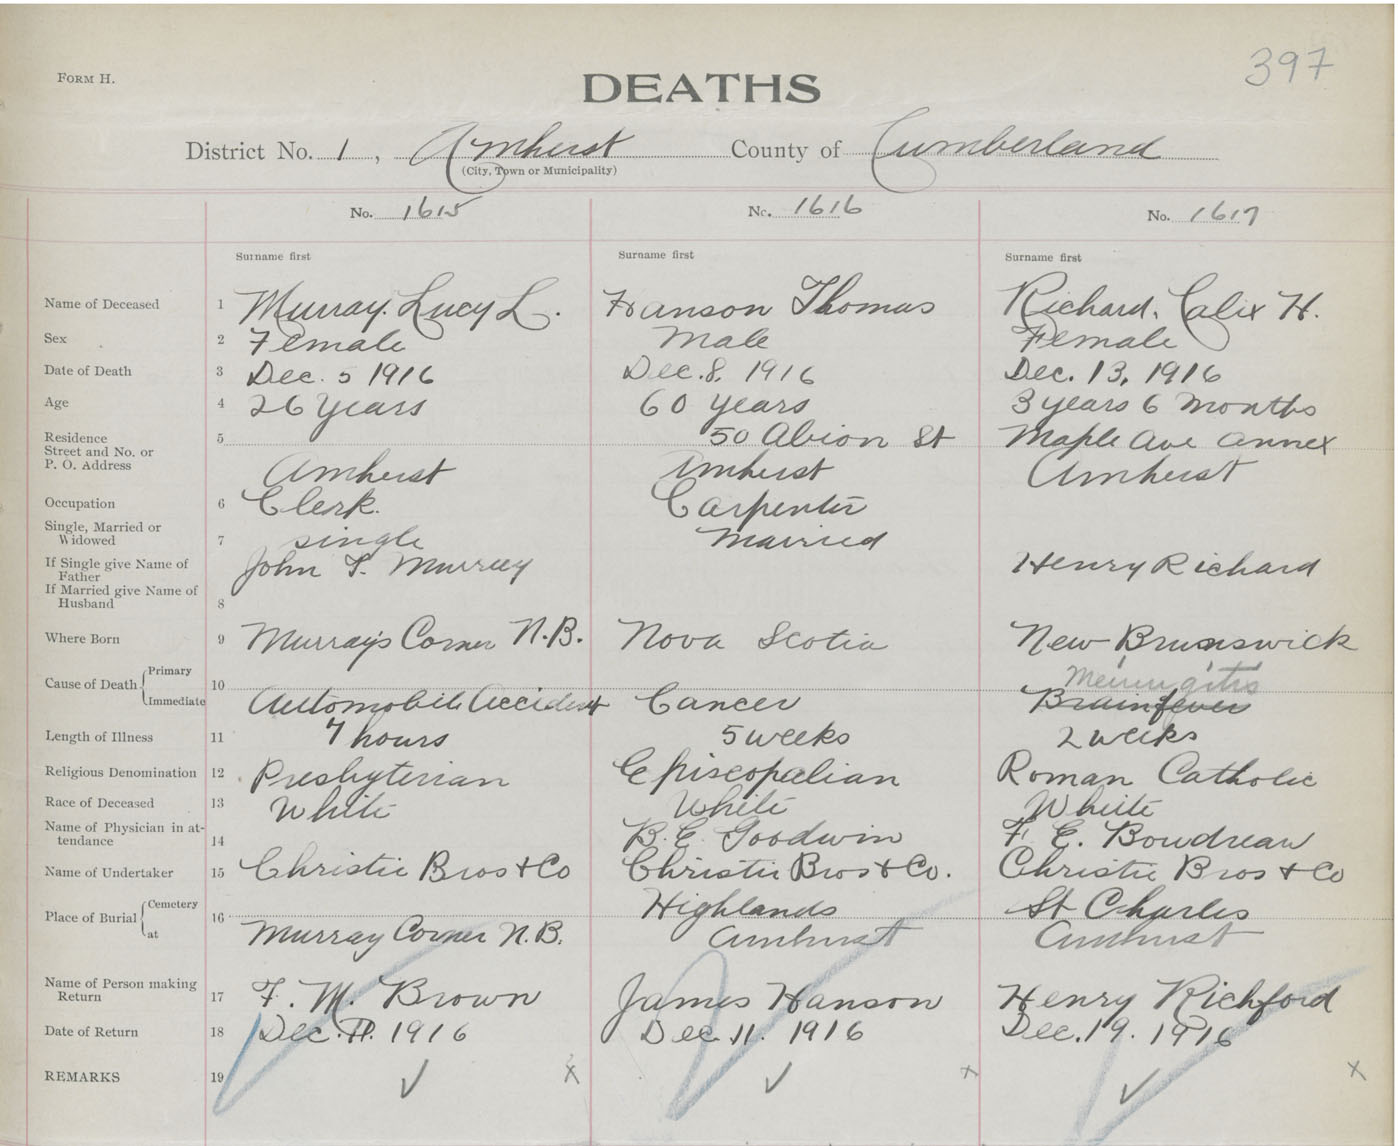 397
FORM H.
DEATHS
District No. 1, Amherst County of Cumberland
(City, Town or Municipality)
No. 1615 No. 1616 No. 1617
Surname first Surname first Surname first
Name of Deceased 1 Murray. Lucy L. Hanson Thomas Richard, Calix H.
Sex 2 Female Male Female
Date of Death 3 Dec. 5 1916 Dec. 8, 1916 Dec. 13, 1916
Age 4 26 Years 60 years 3 years 6 months
Residence 5 50 Albion St Maple Ave annex
Street and No. or
P. O. Address Amherst Amherst Amherst
Occupation 6 Clerk. Carpenter
Single, Married or
Widowed 7 single Married
If Single give Name of
Father John T. Murray Henry Richard
If Married give Name of
Husband 8
Where Born 9 Murray's Corner N.B. Nova Scotia New Brunswick
Cause of Death Primary 10 Meningitis
Immediate Automobile Accident Cancer Brain fever
Length of Illness 11 7 hours 5 weeks 2 weeks
Religious Denomination 12 Presbyterian Episcopalian Roman Catholic
Race of Deceased 13 White White White
Name of Physician in at-
tendance 14 B. E. Goodwin F. E. Boudreau
Name of Undertaker 15 Christie Bros & Co Christie Bros & Co. Christie Bros & Co
Place of Burial Cemetery 16 Highlands St Charles
at Murray Corner N.B. Amhurst Amhurst
Name of Person making
Return 17 F. M. Brown James Hanson Henry Richford
Date of Return 18 Dec. 11. 1916 Dec. 11. 1916 Dec. 19. 1916
REMARKS 19 ✓ x ✓ x ✓ x